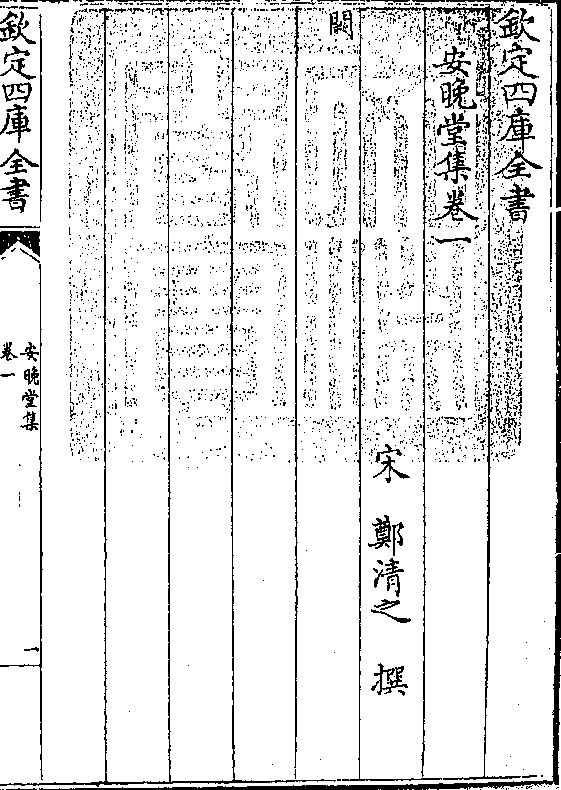 欽定四庫全書
安晚堂集卷一
宋 鄭清之 撰
闕
欽定四庫全書
安晚堂集
卷一
一